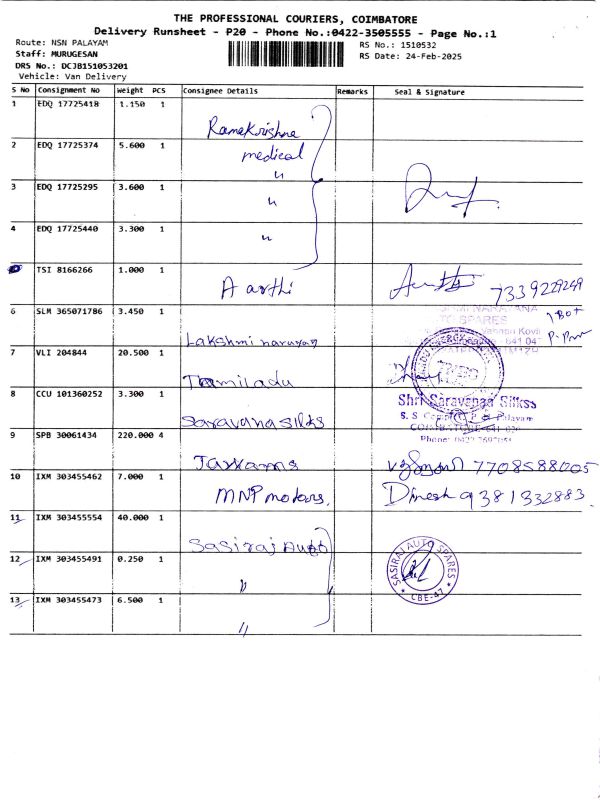 THE PROFESSIONAL COURIERS, COIMBATORE
Delivery Runsheet - P20 - Phone No.:0422-3505555 - Page No.:1
Route: NSN PALAYAM
Staff: MURUGESAN
DRS No.: DCJB151053201
Vehicle: Van Delivery
RS No.: 1510532
RS Date: 24-Feb-2025
S No Consignment No Weight PCS Consignee Details Remarks Seal & Signature
1 EDQ 17725418 1.150 1
Ramakrishna
medical
2 EDQ 17725374 5.600 1
"
3 EDQ 17725295 3.600 1
"
4 EDQ 17725440 3.300 1
"
TSI 8166266 1.000 1
Aarthi 7339229249
6 SLM 365071786 3.450 1
Lakshmi narayan
7 VLI 204844 20.500 1
Tamiladu
8 CCU 101360252 3.300 1
Saravana silks
Shri Saravanaa Silkss
9 SPB 30061434 220.000 4
7708588005
10 IXM 303455462 7.000 1
MNP motors. Dinesh 9381332883
11 IXM 303455554 40.000 1
Sasiraj Auto
SASIRAJ AUTO SPARES
* CBE-47 *
12 IXM 303455491 0.250 1
"
13 IXM 303455473 6.500 1
"